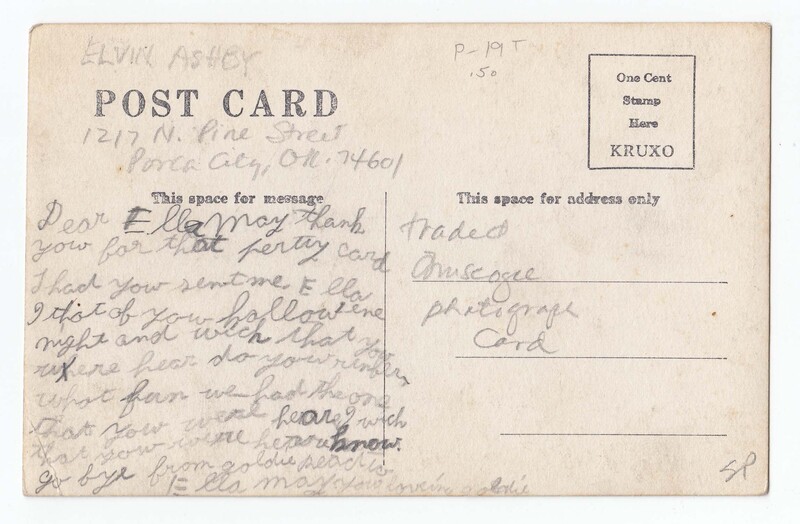 ELVIN ASHBY
P-19T
.50
POST CARD
One Cent
Stamp
Here
KRUXO
1217 N. Pine Street
Ponca City, OK. 74601
This space for message
This space for address only
Dear Ella May thank
you for that pertty card
I had you sent me Ella
I that of you hallowene
night and wich that you
where hear do you rember
what fun we had the one
that you were heare I wich
that you were hear know.
go bye from goldie
Ella may you goldie
traded
Muscogee
photograph
Card
SP